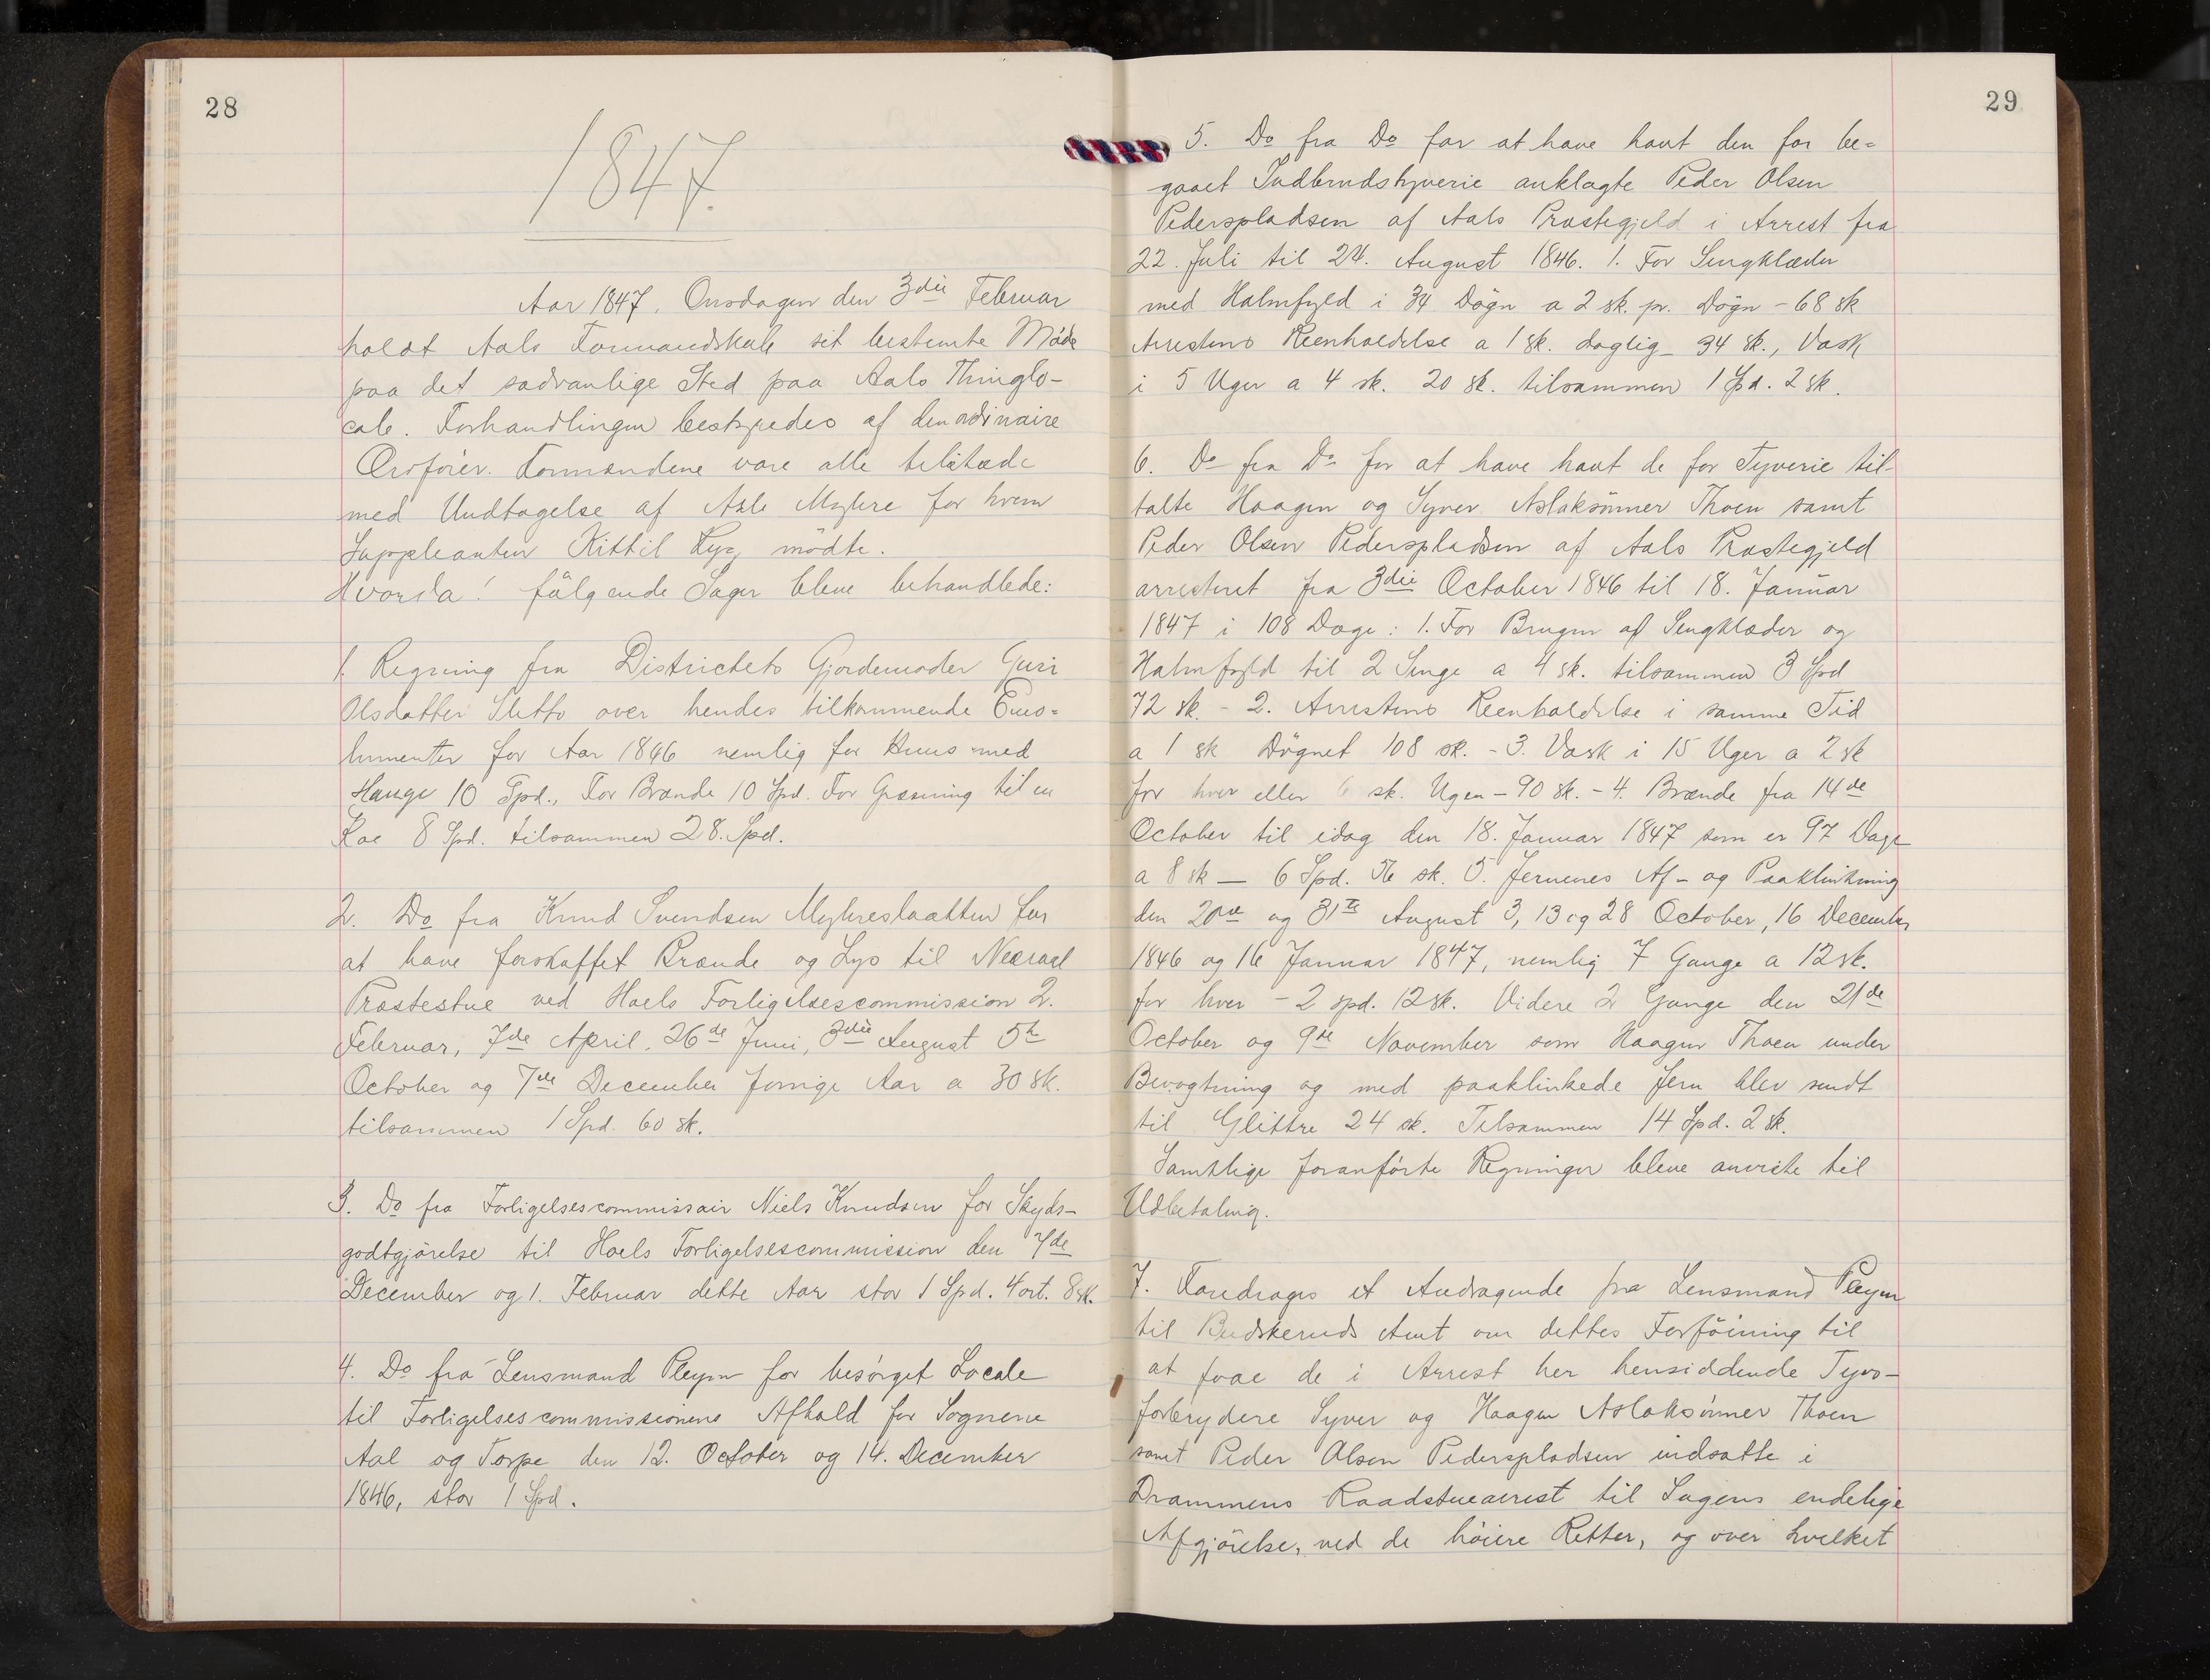 28
1847.
Aar 1847. Onsdagen den 3die Februar
holdt Aals Formandskab sit bestemte Möde
paa det sædvanlige Sted paa Aals Thinglo-
cale. Forhandlingen bestyredes af den ordinaire
Ordförer. Formændene vare alle tilstæde
med Undtagelse af Asle Myhre for hvem
Suppleanten Kittil mödte.
Hvorda! fölgende Sager bleve behandlede:
1. Regning fra Districtets Gjordemoder Guri
Olsdatter Sletto over hendes tilkommende Emo-
lumenter for Aar 1846 nemlig for Huus med
Hauge 10 Spd., For Brænde 10 Spd. For Græsning til en
Koe 8 Spd. tilsammen 28. Spd.
2. Do fra Knud Svendsen Myhreslaatten for
at have forskaffet Brænde og Lys til Nedraal
Præstestue ved Hoels Forligelsescommission 2.
Februar, 7de April, 26de Juni, 3die August 5te
October og 7de December forrige Aar a 30 sk.
tilsammen 1 Spd. 60 sk.
3. Do fra Forligelsescommissair Niels Knudsen for Skyds-
godtgjörelse til Hoels Forligelsescommission den 7de
December og 1. Februar dette Aar stor 1 Spd. 4 ort. 8 sk.
4. Do fra Lensmand Pleym for besörget Locale
til Forligelsescommissionens Afhold for Sognene
Aal og Torpe den 12. October og 14. December
1846, stor 1 Spd.
29
5. Do fra Do for at have havt den for be-
gaaet Indbrudstyverie anklagte Peder Olsen
Pederspladsen af Aals Præstegjeld i Arrest fra
22. Juli til 24. August 1846. 1. For Sengklæder
med Halmfyld i 34 Dögn a 2 sk. pr. Dögn - 68 sk
Arrestens Reenholdelse a 1 sk. daglig - 34 sk., Vask
i 5 Uger a 4 sk. 20 sk. tilsammen 1 Spd. 2 sk.
6. Do fra Do for at have havt de for Tyverie til-
talte Haagen og Syver Aslaksönner Thoen samt
Peder Olsen Pederspladsen af Aals Præstegjeld
arresteret fra 3die October 1846 til 18. Januar
1847 i 108 Dage: 1. For Brugen af Sengklæder og
Halmfyld til 2 Senge a 4 sk. tilsammen 3 Spd
72 sk. - 2. Arrestens Reenholdelse i samme Tid
a 1 sk Dögnet 108 sk. - 3. Vask i 15 Uger a 2 sk
for hver eller 6 sk. Ugen - 90 sk. - 4. Brænde fra 14de
October til idag den 18. Januar 1847 som er 97 Dage
a 8 sk — 6 Spd. 56 sk. 5. Jernenes Af- og Paaklinkning
den 20de og 31te August 3, 13 og 28 October, 16 December
1846 og 16 Januar 1847, nemlig 7 Gange a 12 sk.
for hver - 2 spd. 12 sk. Videre 2 Gange den 21de
October og 9de November som Haagen Thoen under
Bevogtning og med paaklinkede Jern blev sendt
til Glittre 24 sk. Tilsammen 14 Spd. 2 sk.
Samtlige foranförte Regninger bleve anviste til
Udbetaling.
7. Foredroges et Andragende fra Lensmand Pleym
til Budskeruds Amt om dettes Forföining til
at faae de i Arrest her hensiddende Tyvs-
forbrydere Syver og Haagen Aslaksönner Thoen
samt Peder Olsen Pederspladsen indsatte i
Drammens Raadstuearrest til Sagens endelige
Afgjörelse, ved de höiere Retter, og over hvilket